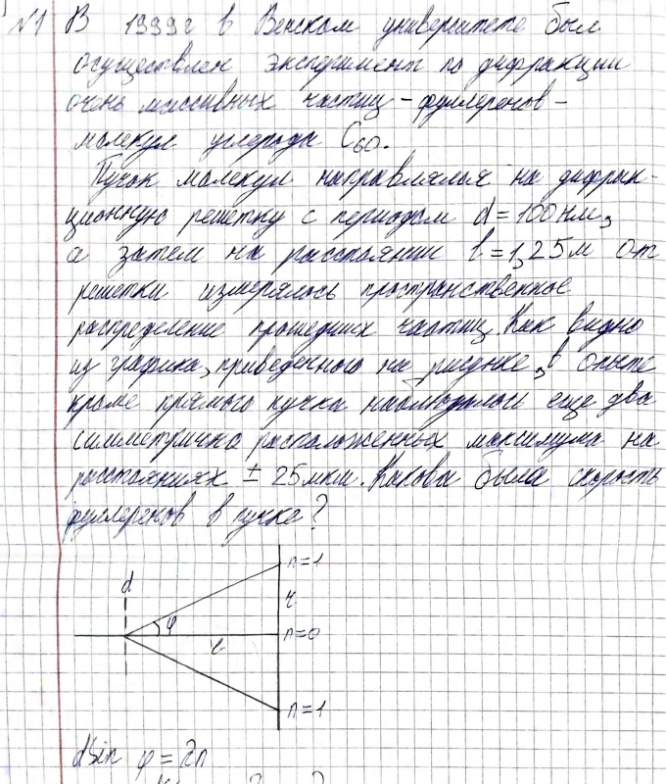 №1 В 1999г в Венском университете был
осуществлен эксперимент по дифракции
очень массивных частиц - фуллеренов -
молекул углерода C60.
Пучок молекул направлялся на дифрак-
ционную решетку с периодом d = 100 нм,
а затем на расстоянии l = 1,25 м от
решетки измерялось пространственное
распределение прошедших частиц. Как видно
из графика, приведенного на рисунке, в опыте
кроме прямого пучка наблюдалось еще два
симметрично расположенных максимума на
расстояниях ± 25 мкм. Какова была скорость
фуллеренов в пучке?
n=1
d
r
φ
n=0
l
n=1
d sin φ = λn